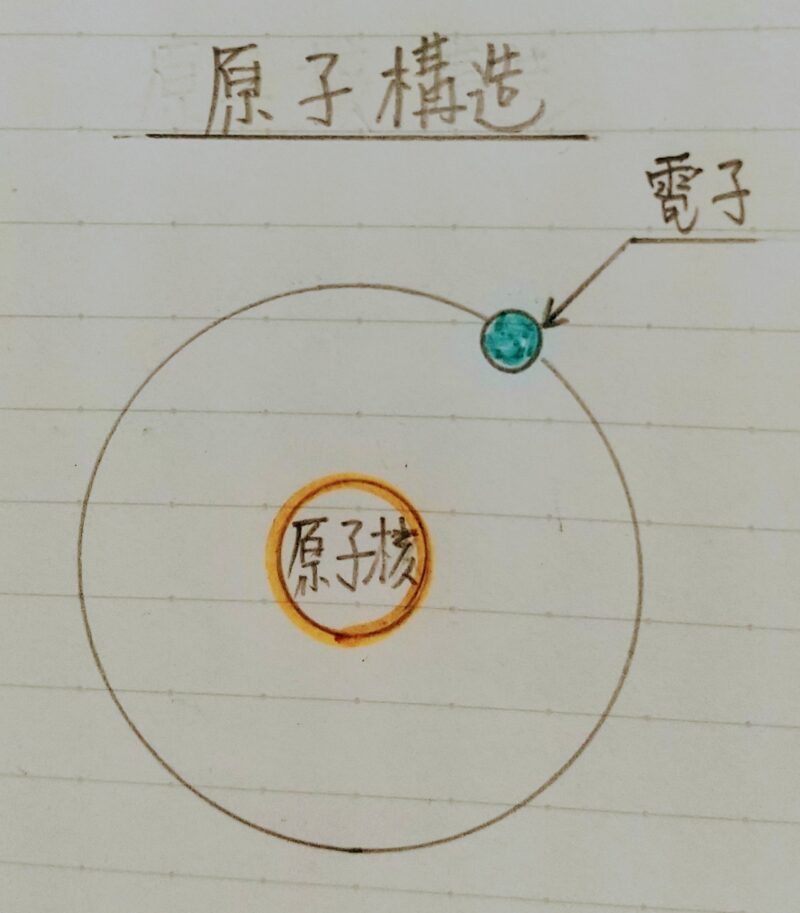 原子構造
電子
原子核